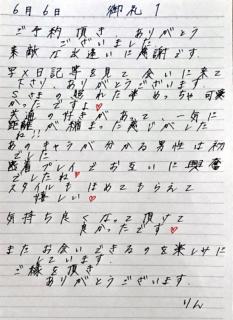 6月6日 御礼1
ご予約頂き、ありがとう
ございました
素敵な出逢いに感謝です。
写メ日記等を見て会いに来て
Sさまの超した夢めっちゃ可愛
かったですよ♥
共通の性さがあって、一気に
距離が縮まった感じがした
ね!!
あのキャラが分かる男性は初
でした
密着プレイでお互いに興奮
でしたね♥
スタイルもほめてもらえて
嬉しい♥
気持ち良くなって頂けて
良かったです♥
またお会いできるのを楽しみに
しています。
ご縁を頂き
ありがとうございます。
りん